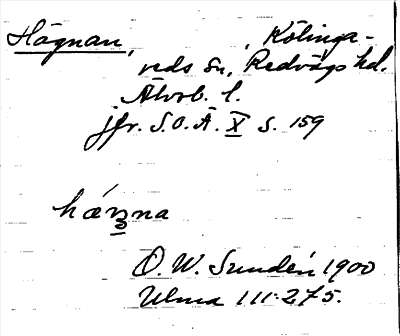 Hägnan, Kölinga-
reds sn, Redvägs hd.
Älvsb. l.
jfr. S.O.Ä. X s. 159
hǽŋna
O.W. Sundén 1900
Ulma 111:275.